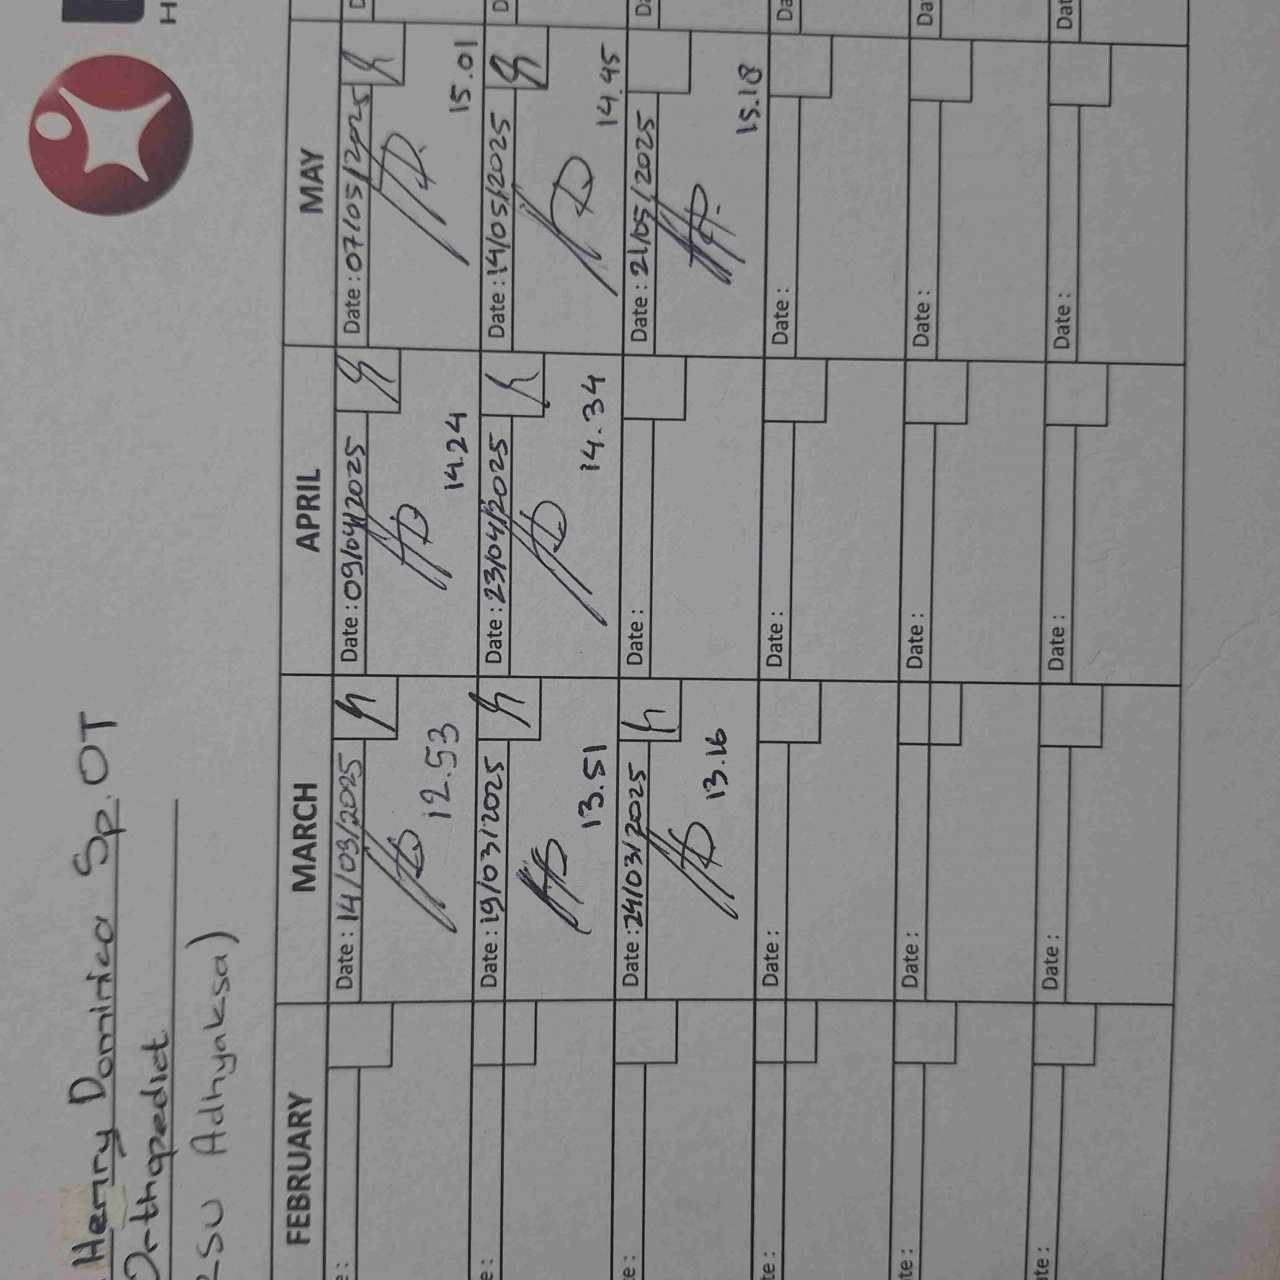 Henry Dominica Sp. OT
Orthopedict
RSU Adhyaksa)
FEBRUARY MARCH APRIL MAY
Date : 14/03/2025 Date : 09/04/2025 Date : 07/05/2025
12.53 14.24 15.01
Date : 19/03/2025 Date : 23/04/2025 Date : 14/05/2025
13.51 14.34 14.45
Date : 24/03/2025 Date : Date : 21/05/2025
13.16 15.18
Date : Date : Date :
Date : Date : Date :
Date : Date : Date :